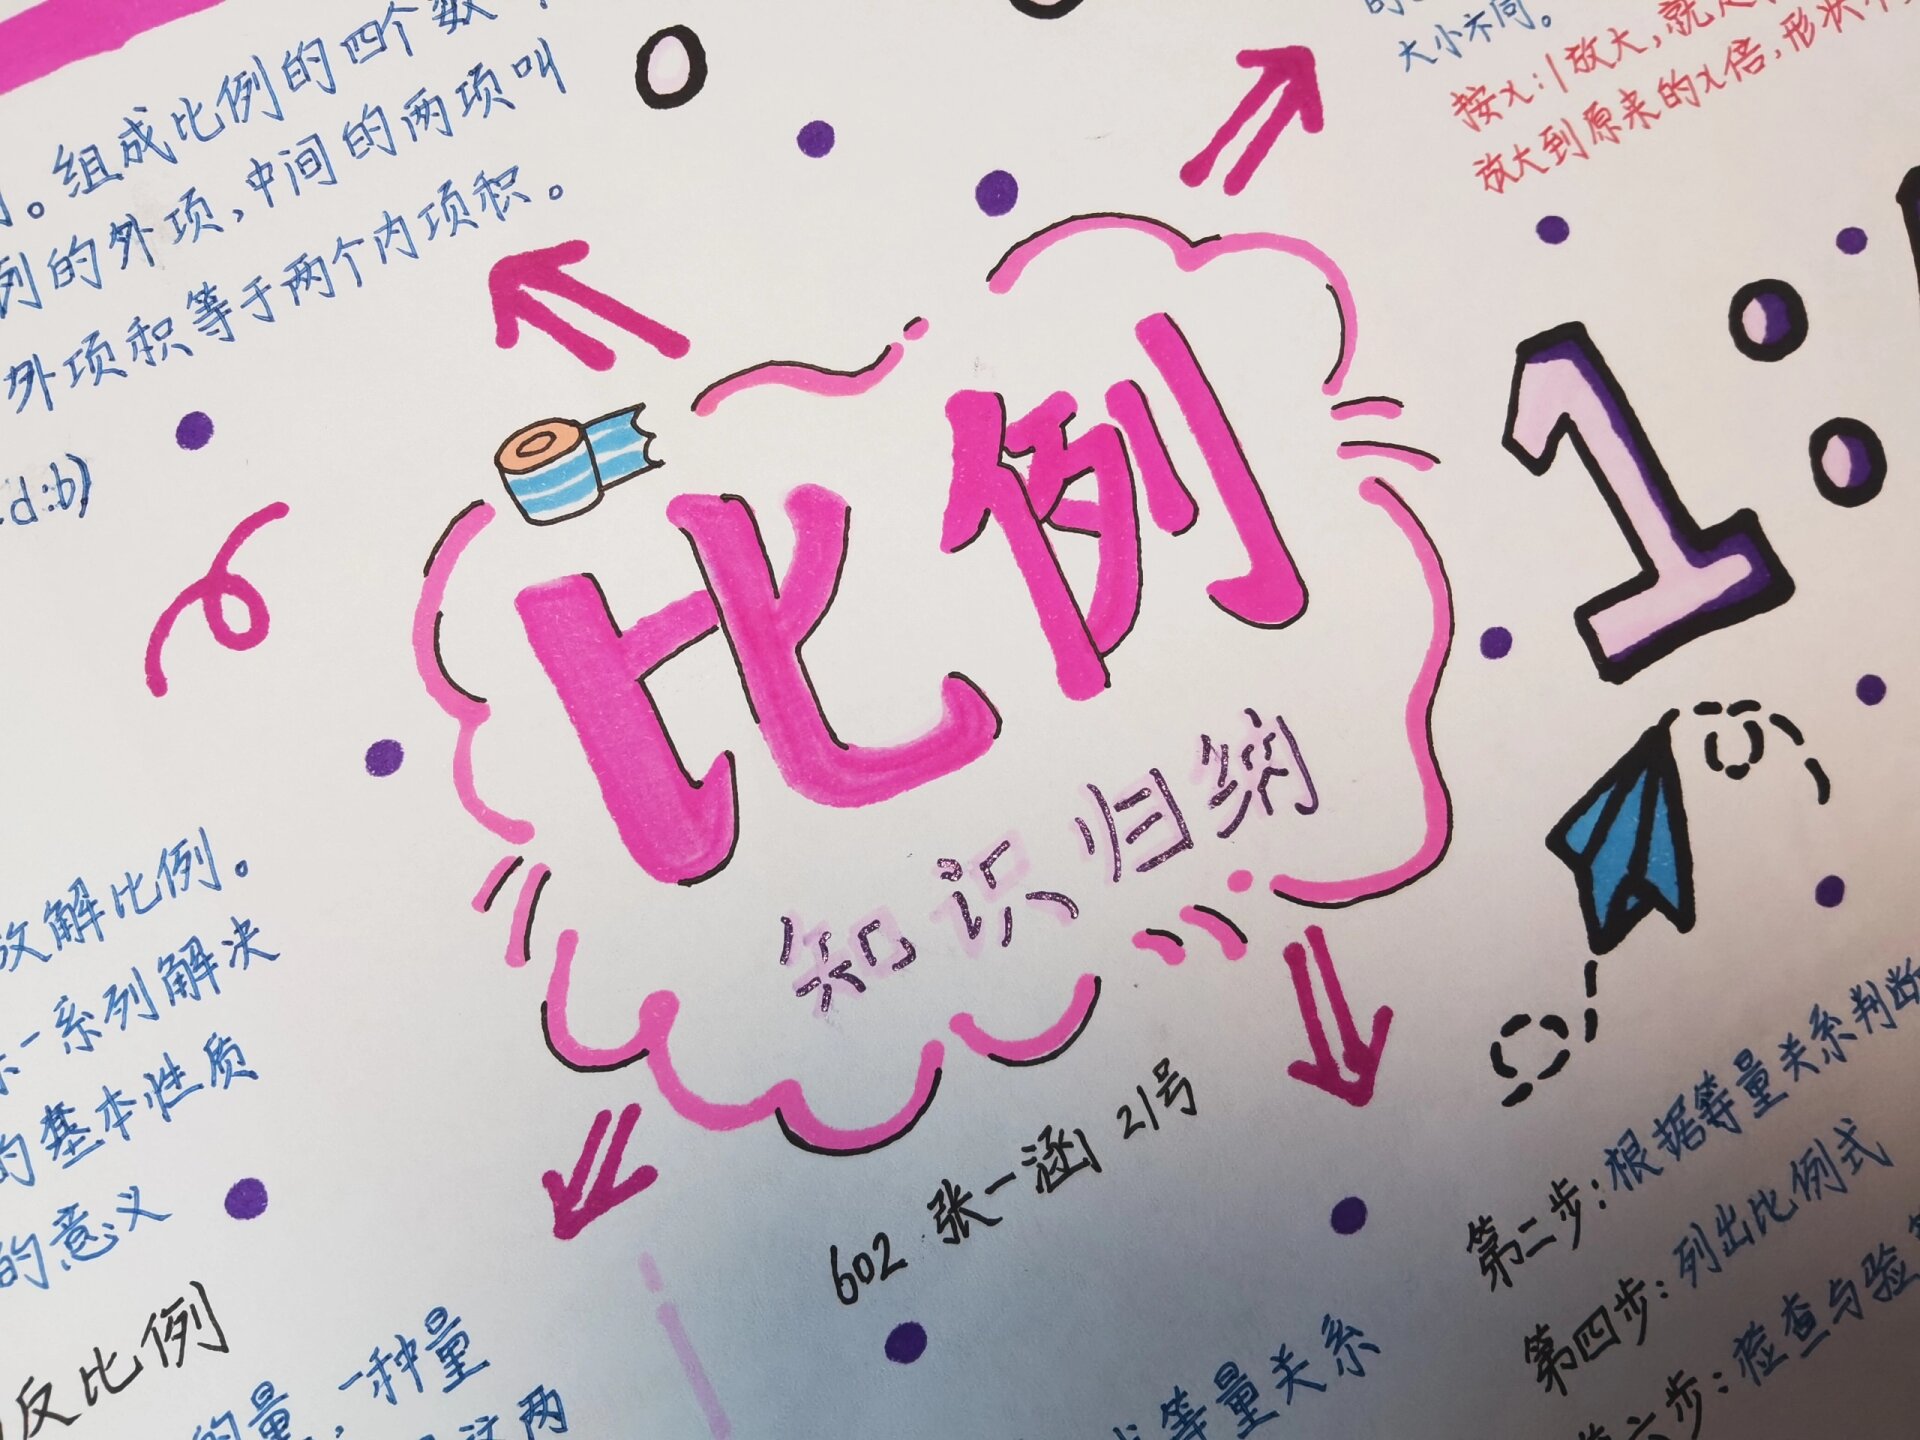 组成比例的四个数
例的外项,中间的两项叫
外项积等于两个内项积。
d:b)
大小不同。
按x:1放大,就是
放大到原来的x倍,形状不
比例
知识归纳
1:
602 张一涵 21号
解比例。
一系列解决
的基本性质
的意义
反比例
的量,一种量
两
等量关系
第二步:根据等量关系判断
第四步:列出比例式
第六步:检查与验